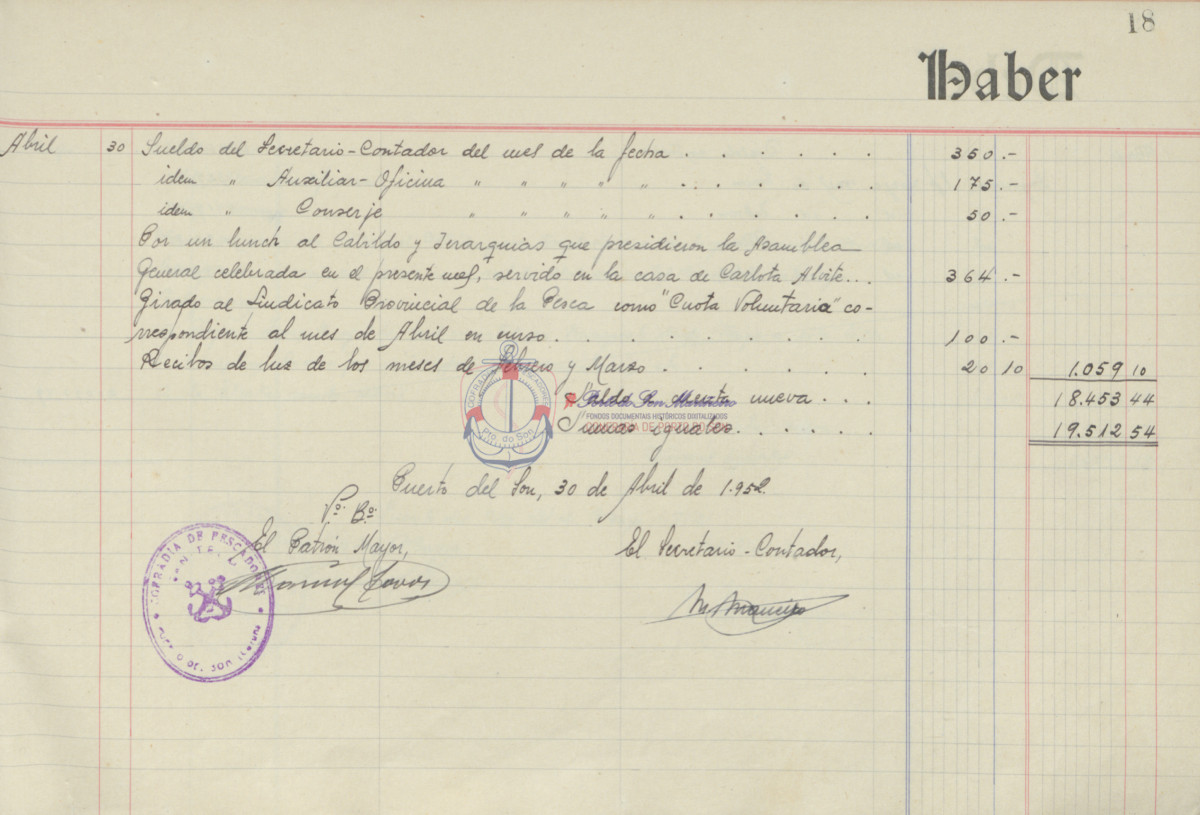 18
Haber
Abril 30 Sueldo del Secretario-Contador del mes de la fecha . . . . . . 350.-
idem " Auxiliar-Oficina " " " " " . . . . . . 175.-
idem " Conserje " " " " " . . . . . . 50.-
Por un lunch al Cabildo y Jerarquias que presidieron la Asamblea
General celebrada en el presente mes, servido en la casa de Carlota Alvite... 364.-
Girado al Sindicato Provincial de la Pesca como "Cuota Voluntaria" co-
rrespondiente al mes de Abril en curso . . . . . . . . . . 100.-
Recibos de luz de los meses de Febrero y Marzo . . . . . . 20 10 1.059 10
Saldo a cuenta nueva . . . 18.453 44
FONDOS DOCUMENTAIS HISTÓRICOS DIXITALIZADOS
Sumas iguales . . . . . . 19.512 54
COFRADÍA DE PORTO DO SON
Pto. do Son
Puerto del Son, 30 de Abril de 1.952.
Vº. Bº.
El Patrón Mayor,
El Secretario-Contador,
COFRADIA DE PESCADORES